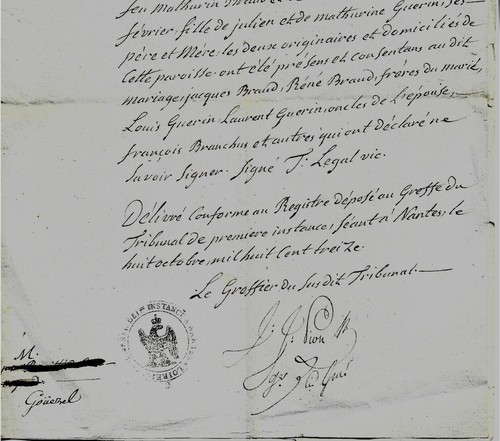 feu Mathurin
février, fille de julien et de mathurine Guerin, ses
père et Mère. les deux originaires et domiciliés de
Cette paroisse. ont été présens et consentans au dit
mariage, jacques Braud, Réné Braud, frères du marié,
Louis Guerin, Laurent Guerin, oncles de L'épouse,
françois Branchus et autres qui ont déclaré ne
Savoir Signer. Signé J. Legal vic.
Délivré Conforme au Registre déposé au Greffe du
Tribunal de première instance, Séant à Nantes, le
huit octobre, mil huit Cent treize.
Le Greffier du Susdit Tribunal.
INSTANCE
M.
Goüezel